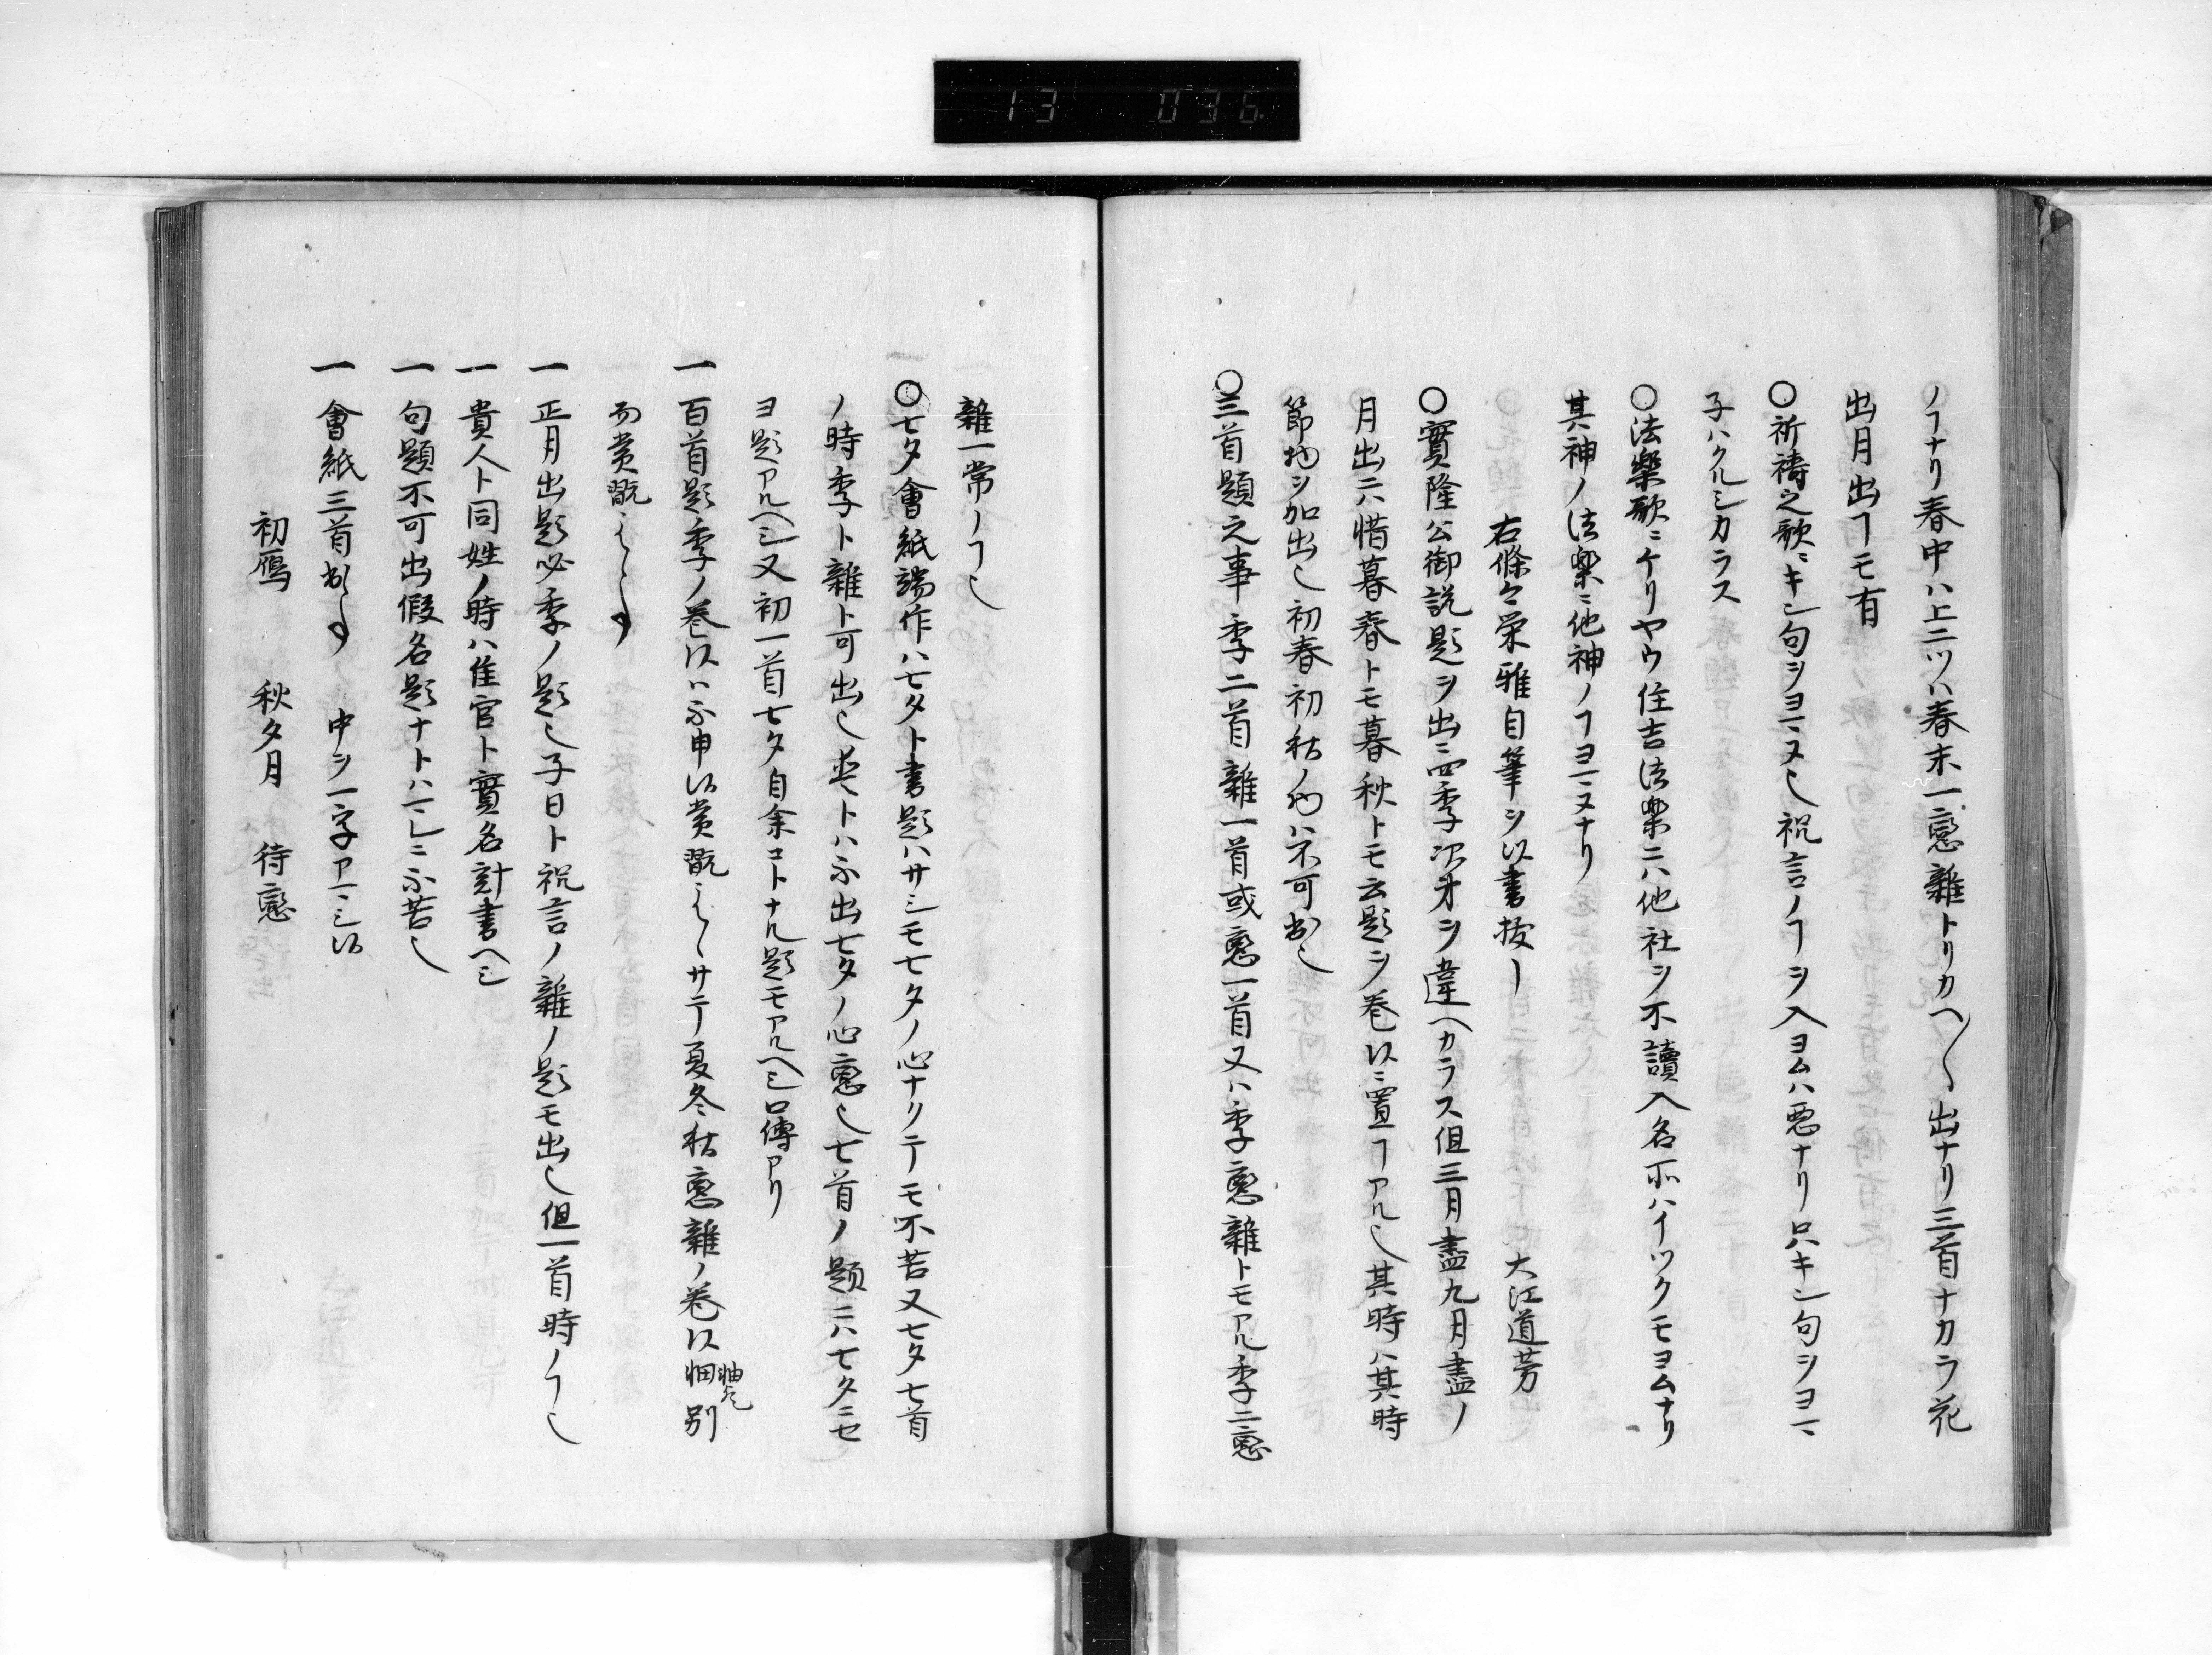 13 036
ノヿナリ春中ハ上二ツハ春末一戀雜トリカヘ〱出ナリ三首ナカラ花
出月出ヿモ有
〇祈禱之歌ニキン句ヲヨマヌ也祝言ノヿヲ入ヨムハ悪ナリ只キン句ヲヨマ
子ハクルシカラス
〇法樂歌ニケリヤウ住吉法樂ニハ他社ヲ不讀入名所ハイツクモヨムナリ
其神ノ法樂ニ他神ノヿヨマヌナリ
右條々栄雅自筆ヲ以書拔ー 大江道芳
〇實隆公御説題ヲ出ニ四季次才ヲ違ヘカラス但三月盡九月盡ノ
月出ニハ惜暮春トモ暮秋トモ云題ヲ巻以ニ置ヿアル也其時ハ其時
節物ヲ加出也初春初秋ノ物ハ不可出也
〇三首題之事季二首雜一首或戀一首又ハ季戀雜トモアル季二戀
雜一常ノヿ也
〇七夕會紙端作ハ七夕ト書題ハサシモ七夕ノ心ナクテモ不苦又七夕七首
ノ時季ト雜ト可出也 トハ不出七夕ノ心戀也七首ノ題ニハ七夕ニセ
ヨ題アルヘシ又初一首七夕自余コトナル題モアルヘシ口傳アリ
一 百首題季ノ巻以ハ不申以賞翫 サテ夏冬秋戀雜ノ巻以 別
而賞翫
一 正月出題必季ノ題也子日ト祝言ノ雜ノ題モ出也但一首時ノヿ也
一 貴人ト同姓ノ時ハ隹官ト實名計書ヘシ
一 句題不可出假名題ナトハ ニ不苦也
一 會紙三首 中ヲ一字アマシ以
初鴈 秋夕月 待戀